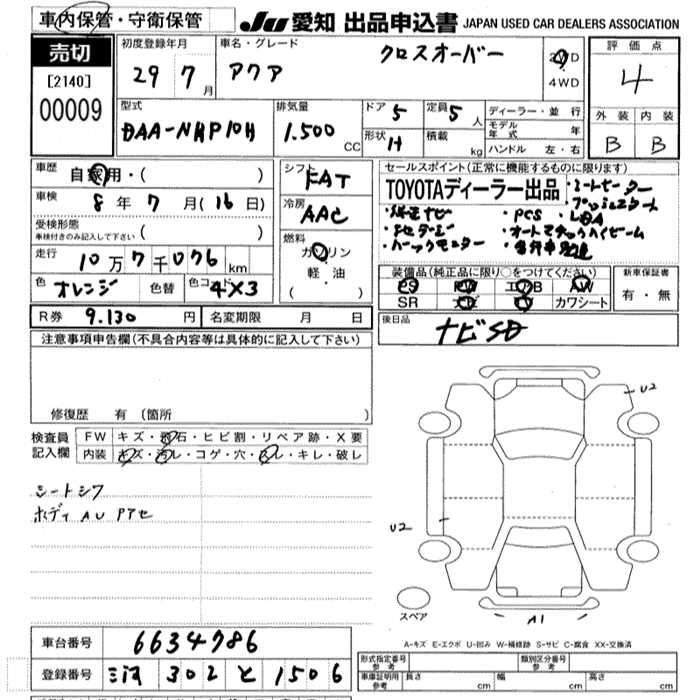 車内保管・守衛保管
JU 愛知 出品申込書 JAPAN USED CAR DEALERS ASSOCIATION
売切
[2140]
00009
初度登録年月
29 7月
車名・グレード
アクア クロスオーバー
2WD
4WD
評価点
4
外装 内装
B B
型式
DAA-NHP10H
排気量
1.500 CC
ドア 5
定員 5人
形状 H
積載 kg
ディーラー・並行
モデル年式 年
ハンドル 左・右
車歴 自家用・( )
車検 8年 7月(16日)
受検形態
車検付きのみ記入して下さい ( )
走行 10万7千076km
色 オレンジ 色替 色コード 4X3
シフト FAT
冷房 AAC
燃料
ガソリン
軽・油
( )
セールスポイント(正常に機能するものに限ります)
TOYOTAディーラー出品
・シートヒーター
・プッシュスタート
・純正ナビ ・PCS ・LDA
・オートマチックハイビーム
・バックモニター
装備品(純正品に限り○をつけてください)
PS PW エアB AW
SR ナビ カワシート
新車保証書
有・無
R券 9.130円 名変期限 月 日
後日品
ナビSD
注意事項申告欄(不具合内容等は具体的に記入して下さい)
修復歴 有(箇所 )
検査員記入欄
FW キズ・飛石・ヒビ割・リペア跡・X要
内装 キズ・汚レ・コゲ・穴・スレ・キレ・破レ
シートシワ
ボディ AU Pアセ
U2
U2
スペア
A1
A-キズ E-エクボ U-凹み W-補修跡 S-サビ C-腐食 XX-交換済
車台番号 6634786
登録番号 三河 302 と 1506
形式指定番号 参考
類別区分番号 参考
車庫証明用 参考 長さ cm 幅 cm 高さ cm